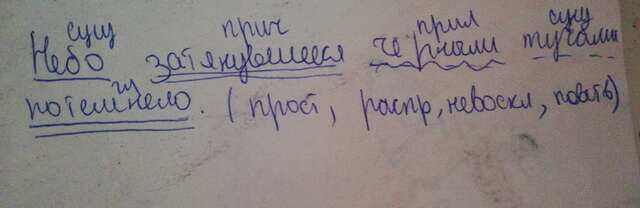 сущ прич прил сущ
Небо затянувшееся черными тучами
гл
потемнело. (прост, распр, невоскл, повеств)